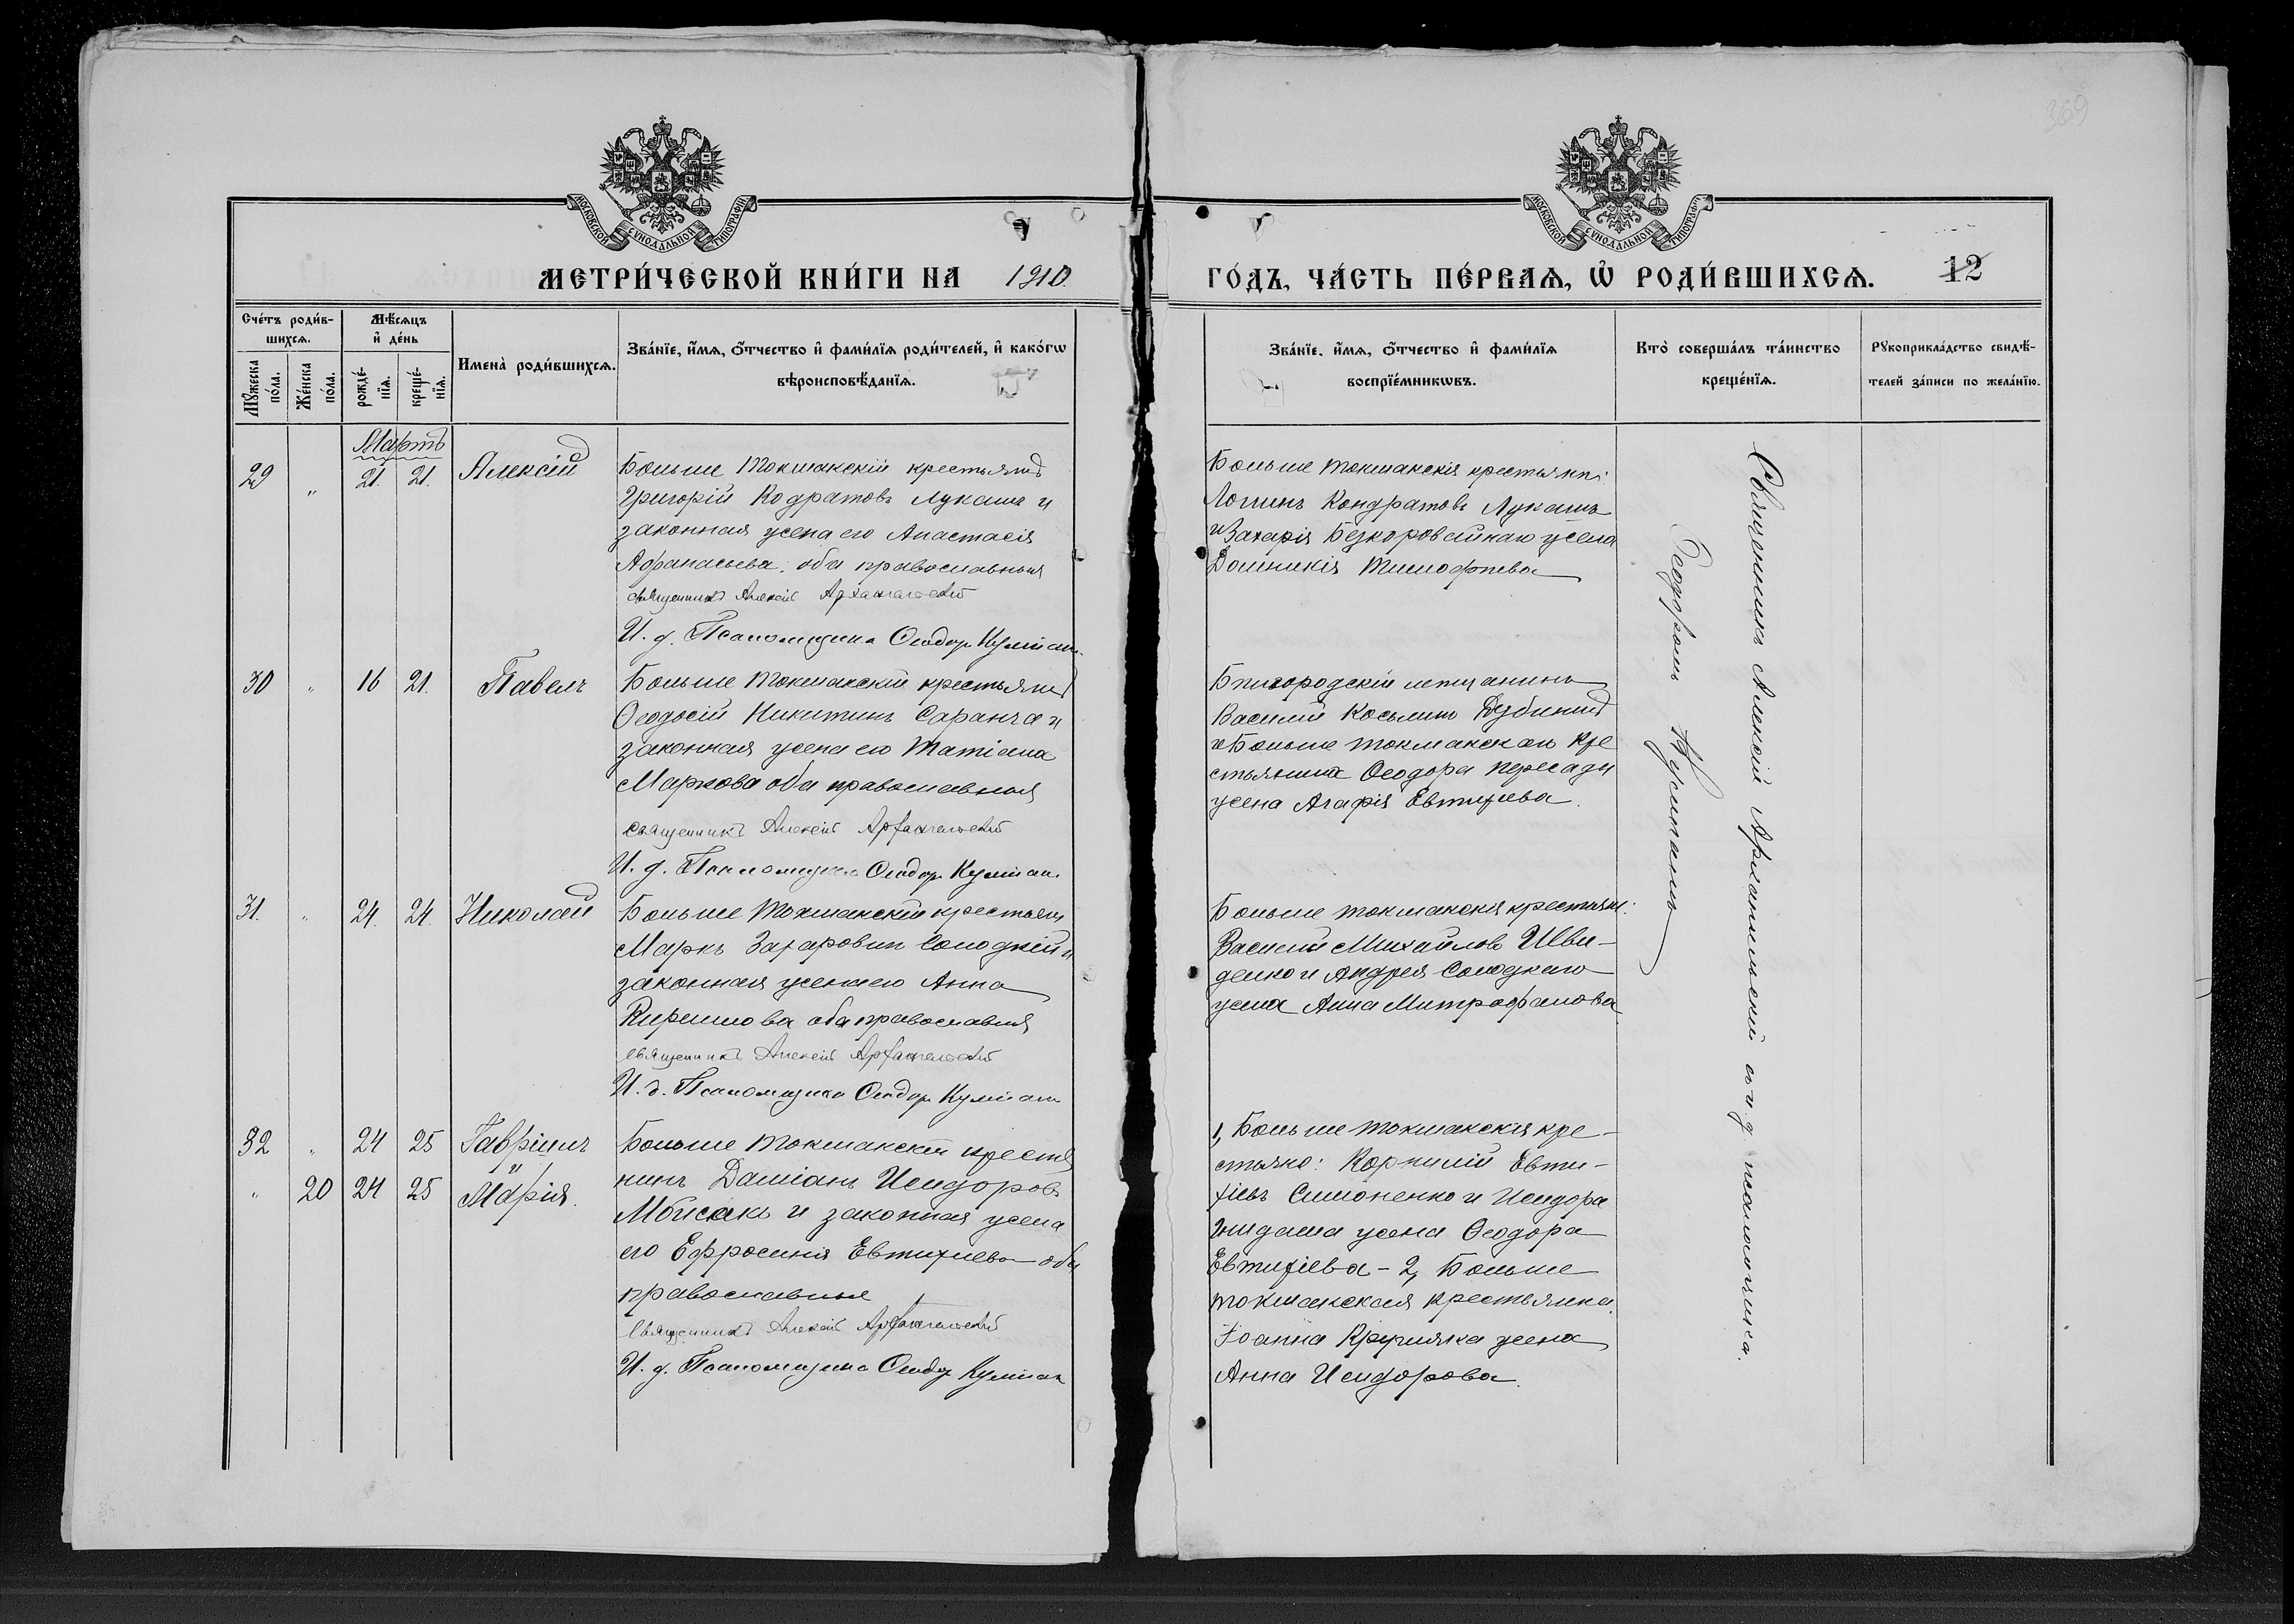 369
МОСКОВСКОЙ СѴНОДАЛЬНОЙ ТИПОГРАФІИ
МОСКОВСКОЙ СѴНОДАЛЬНОЙ ТИПОГРАФІИ
МЕТРИ́ЧЕСКОЙ КНИ́ГИ НА 1910
ГО́ДЪ, ЧА́СТЬ ПЕ́РВАѦ, Ѡ РОДИ́ВШИХСѦ. 12
Сче́тъ роди́в-
шихсѧ.
Мꙋжеска по́ла.
Же́нска по́ла.
Мѣ́сѧцъ
и де́нь
рожде́-
нїѧ.
креще́-
нїѧ.
Имена̀ роди́вшихсѧ.
Зва́нїе, и҆́мѧ, ѻ҆́тчество и҆ фами́лїѧ роди́телей, и҆ како́гѡ
вѣроисповѣ́данїѧ.
Зва́нїе, и҆́мѧ, ѻ҆́тчество и҆ фами́лїѧ
воспрїе́мникѡвъ.
Кто̀ соверша́лъ та́инство
креще́нїѧ.
Рꙋкоприкла́дство свидѣ́-
телей за́писи по жела́нїю.
Мартъ
29 " 21. 21. Алексій
Больше Токмакскій крестьянъ
Григорій Кодратовъ Лукашъ и
законная жена его Анастасія
Афанасьева, оба православныя
священникъ Алексій Архангельскій
И. д. Псаломщика Ѳеодор
Больше токмакскія крестьяни:
Логинъ Кондратовъ Лукашъ
и Захарія Безкоровайнаго жена
Домникія Тимофеева
30 " 16 21. Павелъ
Больше Токмакскій крестьянъ
Ѳеодосій Никитинъ Саранча и
законная жена его Татіана
Маркова оба православныя
священникъ Алексій Архангельскій
И. д. Псаломщика Ѳеодор
мещанинъ
Василій Косьминъ
и Больше токмакскаго кре
стьянина Ѳеодора Пересади
жена Агафія Евтихіева.
31. " 24. 24. Николай
Больше Токмакскій крестьян
Маркъ Захаровъ Солодкій и
законная жена его Анна
Кирилова оба православныя
священникъ Алексій Архангельскій
И. д. Псаломщика Ѳеодор
Больше токмакскія крестьян:
Василій Михайловъ Шви-
денко и Андрея Солодкаго
жена Анна Митрофанова
32 " 24 25 Гавріилъ
и
" 20 24 25 Марія.
Больше Токмакскій крестья
нинъ Даміанъ Исидоровъ
и законная жена
его Ефросинія Евтихіева оба
православныя
Священникъ Алексій Архангельскій
И. д. Псаломщика Ѳеодор
1, Больше токмакскія кре-
стьяне: Корнилій Евти-
хіевъ Симоненко и Исидора
жена Ѳеодора
Евтихіева - 2, Больше
токмакская крестьянка
Іоанна Кругляка жена
Анна Исидорова.
Священникъ Алексій Архангельскій съ и. д. псаломщика
Ѳеодоромъ